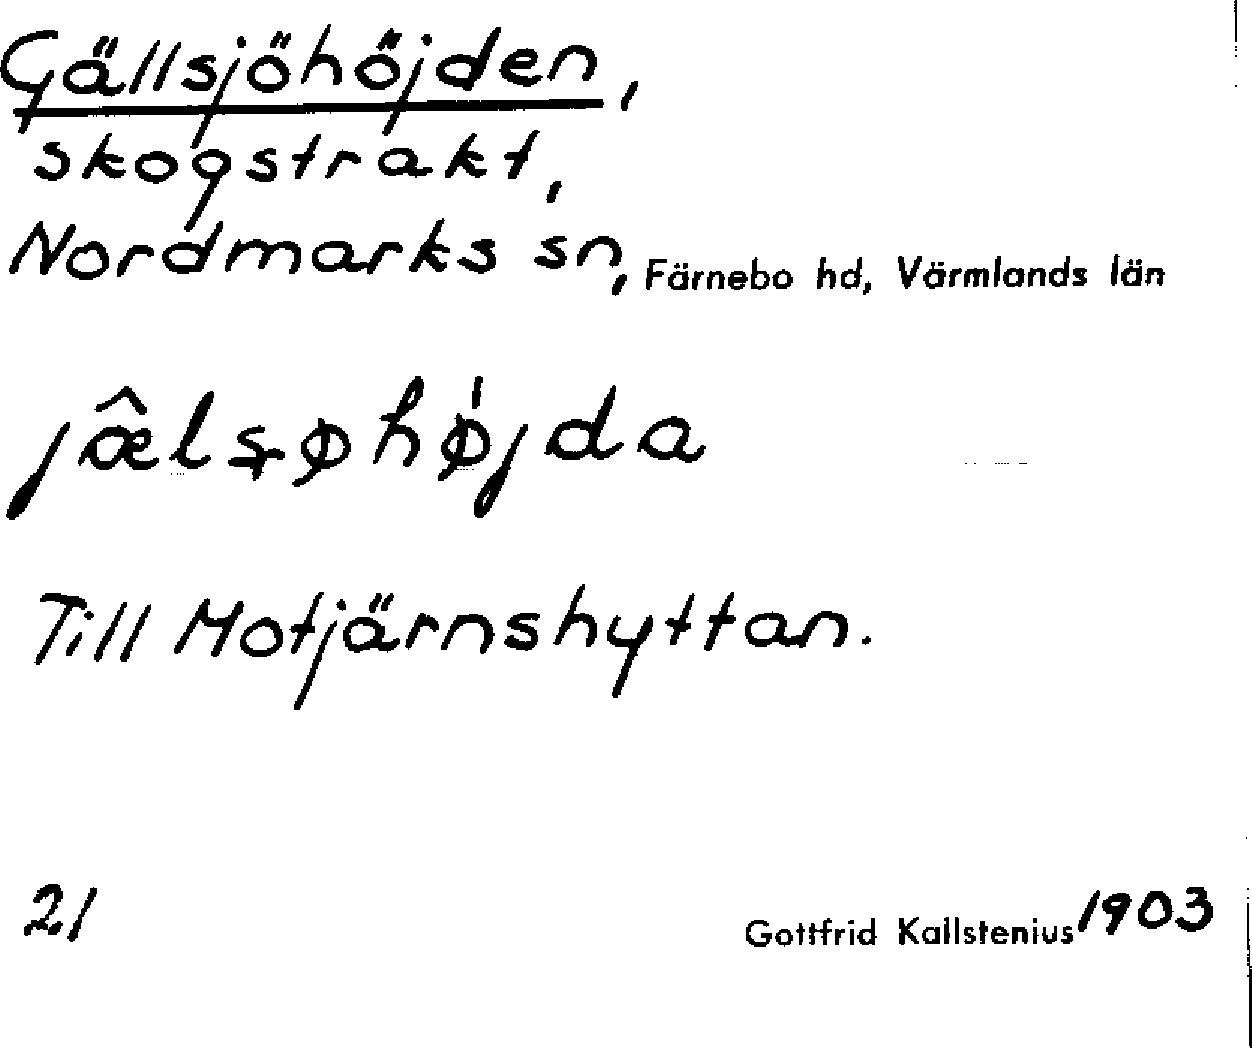 Gällsjöhöjden,
skogstrakt,
Nordmarks sn, Färnebo hd, Värmlands län
jæ̂lsøhø̍jda
Till Motjärnshyttan.
21
Gottfrid Kallstenius 1903